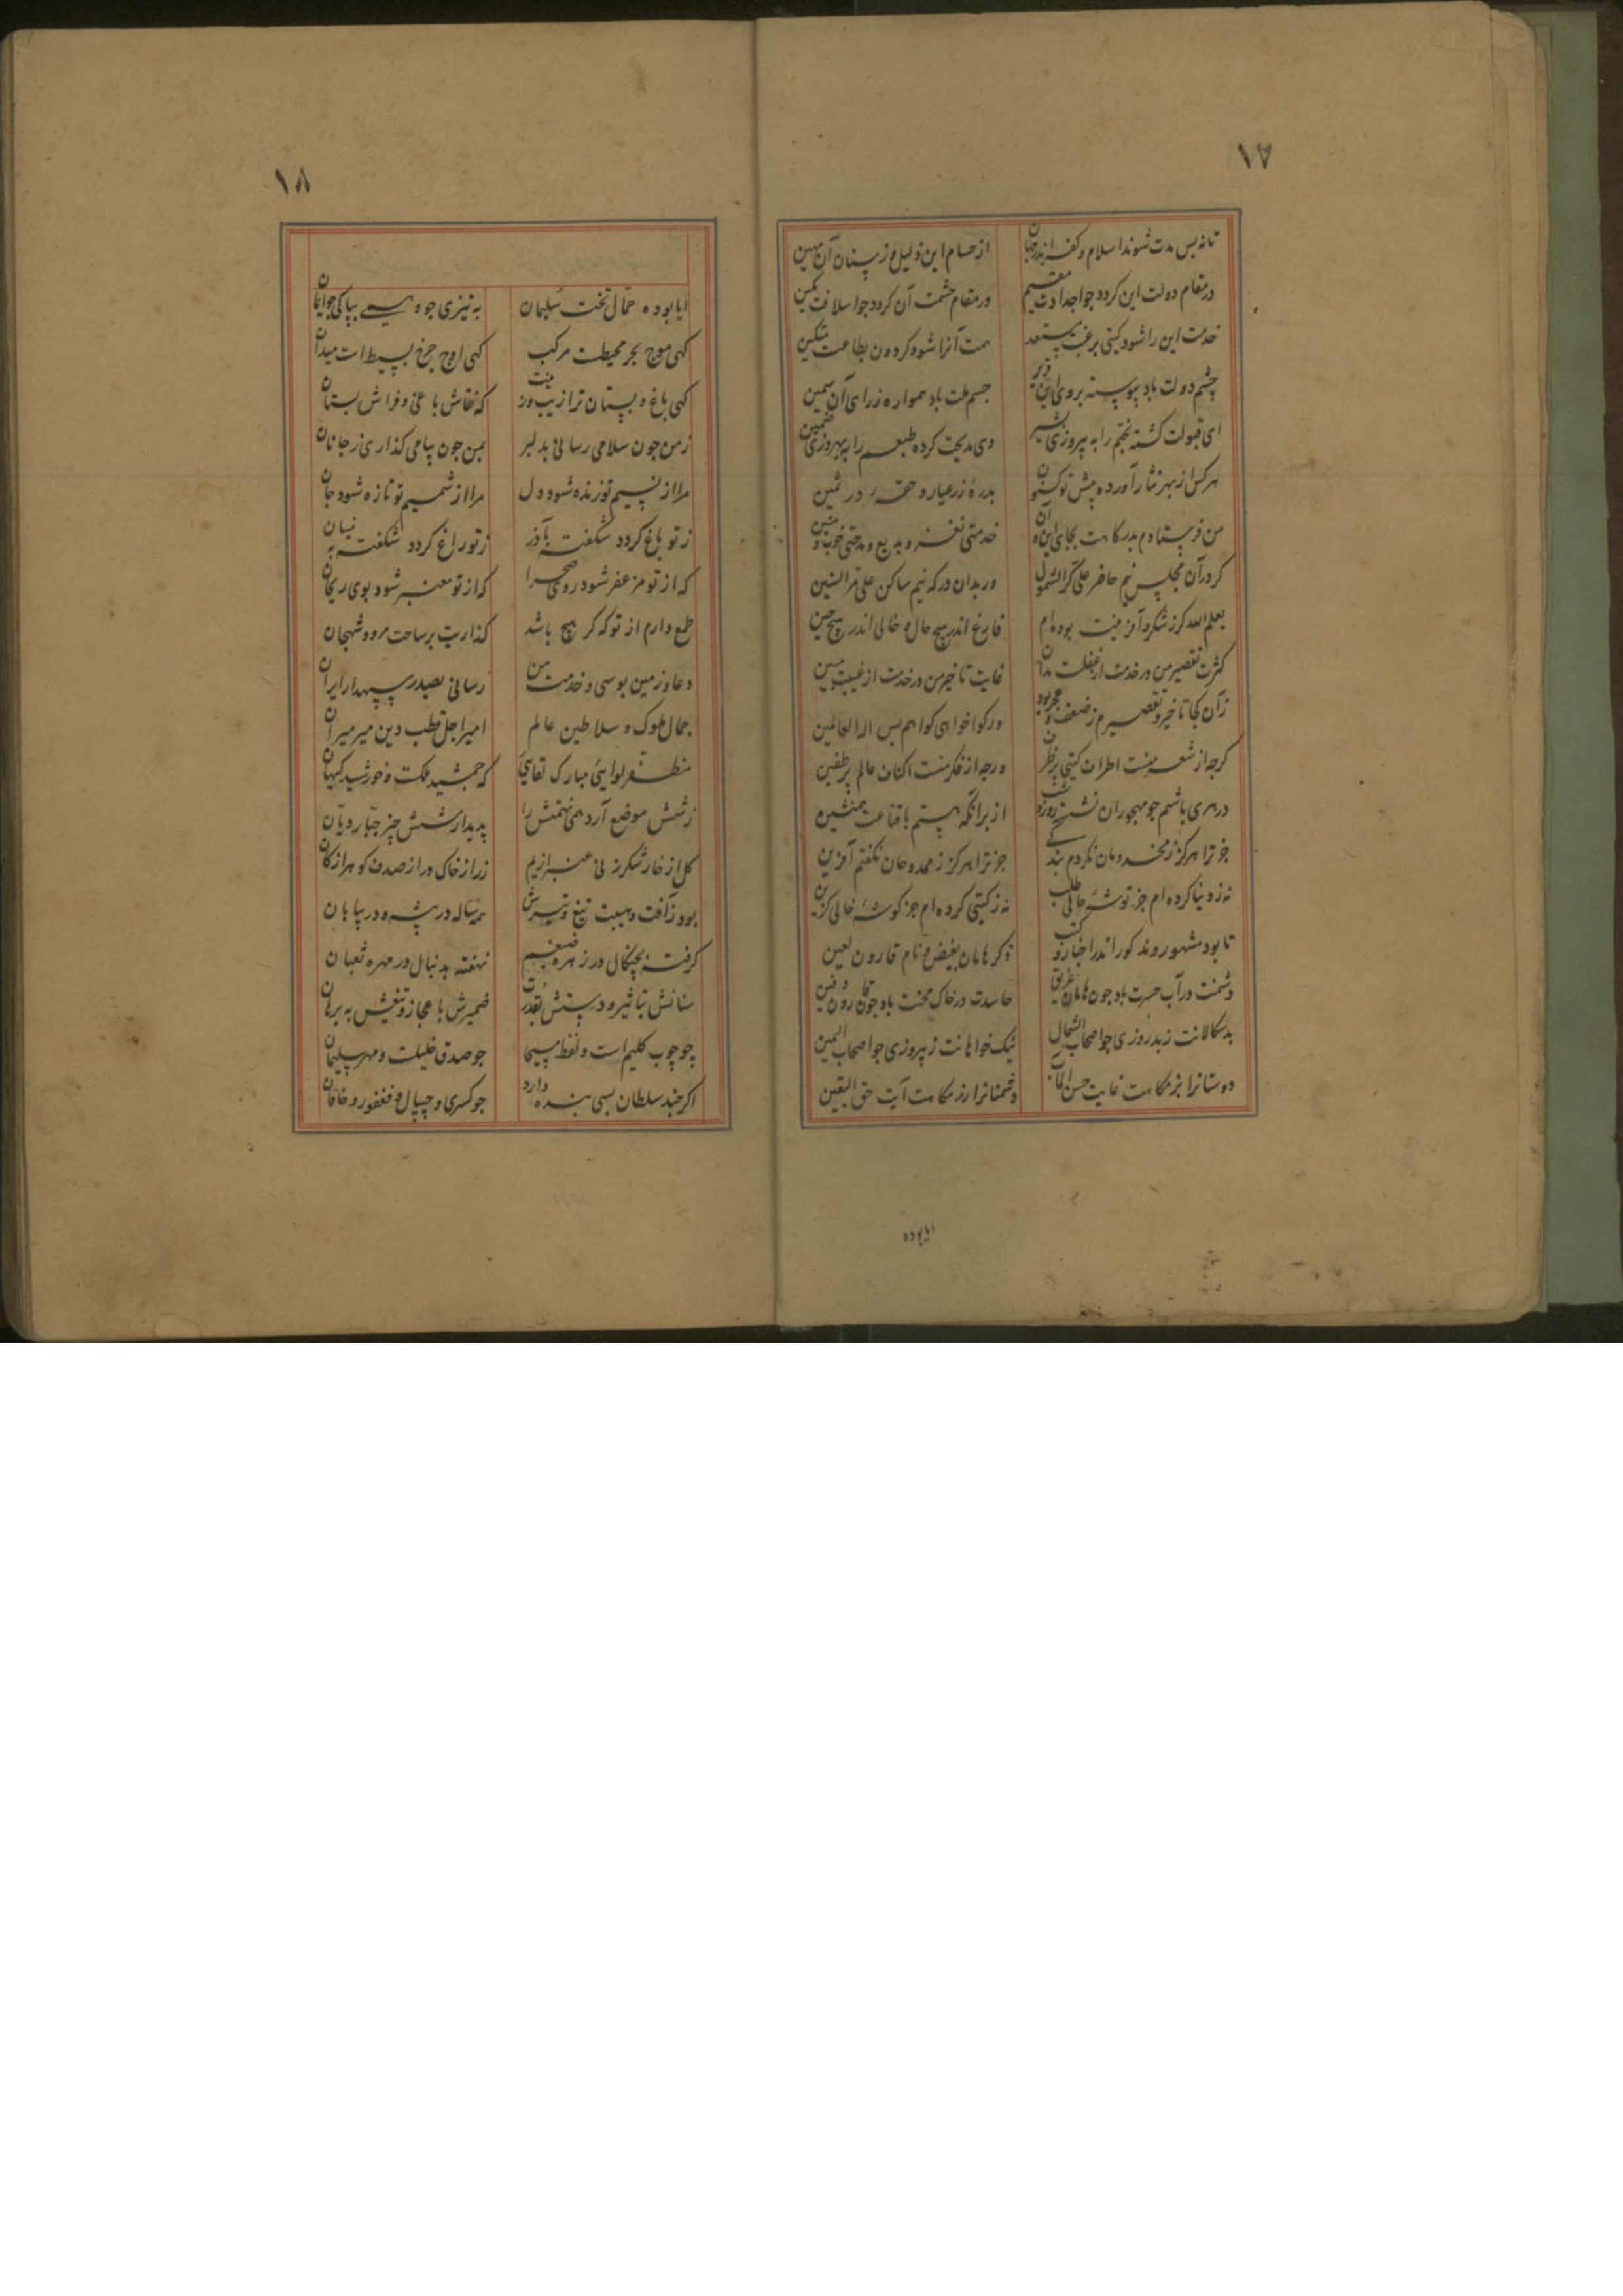 ۱۷
تا نه بس مدت شوند اسلام و کفر اندر جهان از حسام این ذلیل و ز سنان آن مهین
در مقام دولت این کردد جو اجدادت مقیم در مقام حشمت آن کردد جو اسلافت مکین
خدمت این را شود کیتی برغبت مستعد همت آنرا شود کردون بطاعت مستکین
چشم دولت باد پیوسته بروی این قریر جسم ملت باد همواره ز رای آن سمین
ای قبولت کشته بختم را به پیروزی بشیر وی مدیحت کرده طبعم را به بهروزی ضمین
هر کس از بهر نثار آورده پیش تو کنون بدره زر عیار و حقه در ثمین
من فرستادم بدرکاهت بجای این و آن خدمتی نغز و بدیع و مدحتی خوب و متین
کر در آن مجلس نیم حاضر علی کر الشمول ور بدان درکه نیم ساکن علی مر السنین
یعلم الله کر ز شکر و آفرینت بوده ام فارغ اندر هیچ حال و خالی اندر هیچ حین
کثرت تقصیر من در خدمت از غفلت مدان غایت تاخیر من در خدمت از غیبت مبین
زآن کجا تاخیر و تقصیرم ز ضعف و عجز بود ور کوا خواهی کواهم بس اله العالمین
کرجه از شعر منست اطراف کیتی پر ظرف ورجه از فکر منست اکناف عالم پر طنین
در هری باشم جو مهجوران نشسته روز و شب از برا آنکه هستم با قناعت همنشین
جز ترا هرکز ز مخدومان نکردم بندکی جز ترا هرکز ز ممدوحان نکفتم آفرین
نه ز دنیا کرده ام جز توشه حالی طلب نه ز کیتی کرده ام جز کوشه خالی کزین
تا بود مشهور و مذکور اندر اخبار و کتب ذکر هامان بغیض و نام قارون لعین
دشمنت در آب حسرت باد جون هامان غریق حاسدت در خاک محنت باد جون قارون دفین
بدسکالانت ز بدروزی چو اصحاب الشمال نیک خواهانت ز پیروزی جو اصحاب الیمین
دوستانرا بزمکاهت غایت حسن المآب دشمنانرا رزمکاهت آیت حق الیقین
ایا بوده
۱۸
ایا بوده حمال تخت سلیمان به تیزی جو وهمی بپاکی جو ایمان
کهی موج بحر محیطت مرکب کهی اوج چرخ بسیط است میدان
کهی باغ و بستان ترا زیب و زینت که نقاش باغی و فراش بستان
ز من جون سلامی رسانی بدلبر بمن جون پیامی کذاری ز جانان
مرا از نسیم تو زنده شود دل مرا از شمیم تو تازه شود جان
ز تو باغ کردد شکفته بآذر ز تو راغ کردد شکفته به نیسان
که از تو مزعفر شود روی صحرا که از تو معنبر شود بوی ریحان
طمع دارم از تو که کر هیچ باشد کذاریت بر ساحت مرو و شهجان
دعا و زمین بوسی و خدمت من رسانی بصدر سپهدار ایران
جمال ملوک و سلاطین عالم امیر اجل قطب دین میر میران
مظفر لوایی مبارک لقایی که جمشید ملکت و خورشید کیهان
ز شش موضع آرد همی نهمتش را پدیدار شش چیز جبار دیان
کل از خار و شکر ز نی عنبر از یم زر از خاک و در از صدف کوهر از کان
بود ز آفت و هیبت تیغ و تیرش همه ساله در بیشه و در بیابان
کرفته بچنکال در زهره ضیغم نهفته بدنبال در مهره ثعبان
سنانش بتاثیر و دستش بقدرت ضمیرش باعجاز و تیغش به برهان
چو چوب کلیم است و لفظ مسیحا جو صدق خلیلت و مهر سلیمان
اکر جند سلطان بسی بنده دارد جو کسری و جیپال و فغفور و خاقان